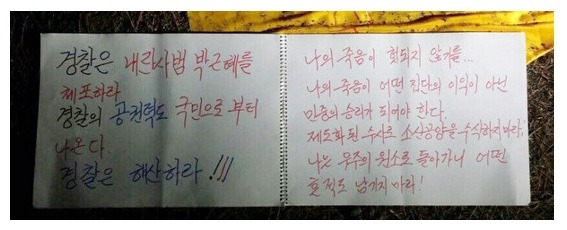 경찰은 내란사범 박근혜를
체포하라
경찰의 공권력도 국민으로 부터
나온다
경찰은 해산하라!!!
나의 죽음이 헛되지 않기를...
나의 죽음이 어떤 집단의 이익이 아닌
민중의 승리가 되어야 한다.
제도화된 수사로 소신공양을 수식하지 마라,
나는 우주의 원소로 돌아가니 어떤
흔적도 남기지 마라!